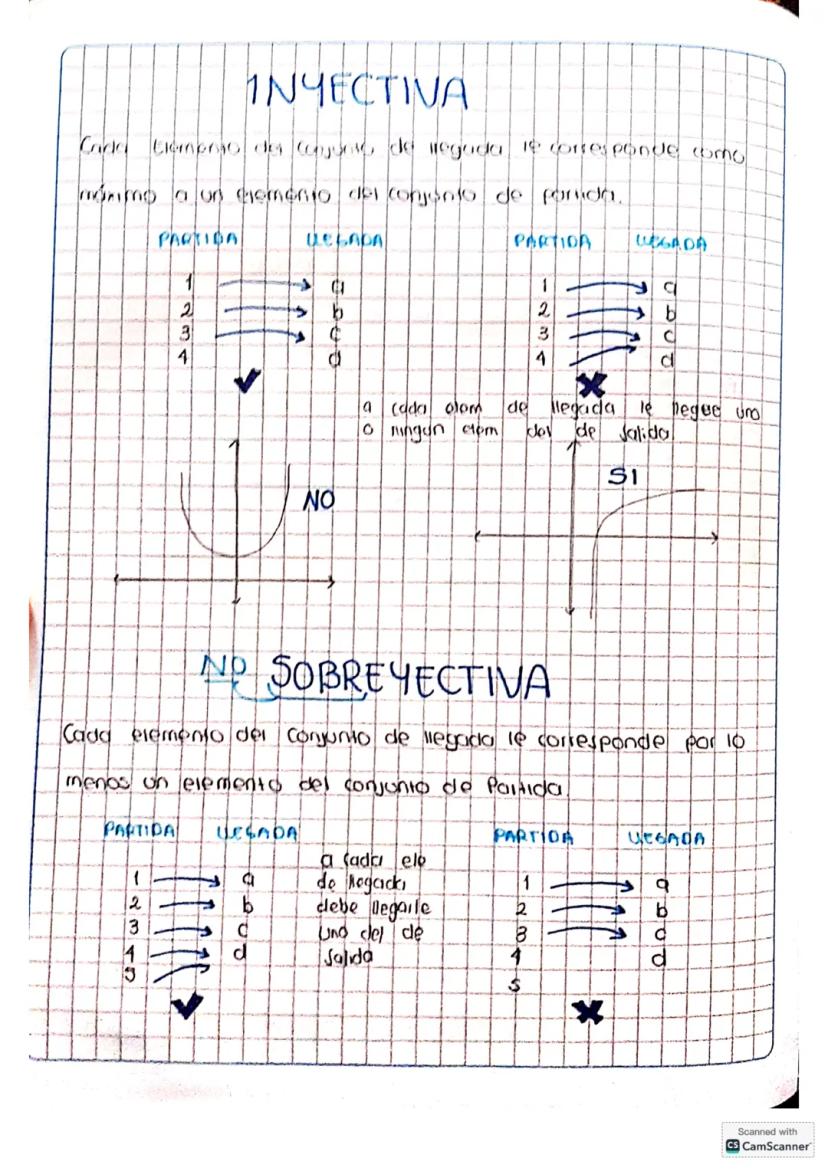 INYECTIVA
Cada elemento del conjunto de llegada le corresponde como
máximo a un elemento del conjunto de partida.
PARTIDA LLEGADA PARTIDA LLEGADA
1 a 1 a
2 b 2 b
3 c 3 c
4 d 4 d
a cada elem de llegada le llegue uno
o ningun elem del de salida
NO SI
NO SOBREYECTIVA
Cada elemento del conjunto de llegada le corresponde por lo
menos un elemento del conjunto de Partida
PARTIDA LLEGADA PARTIDA LLEGADA
a cada ele
1 a de llegada 1 a
2 b debe llegarle 2 b
3 c uno del de 3 c
4 d salida 4 d
5 5
Scanned with
CS CamScanner